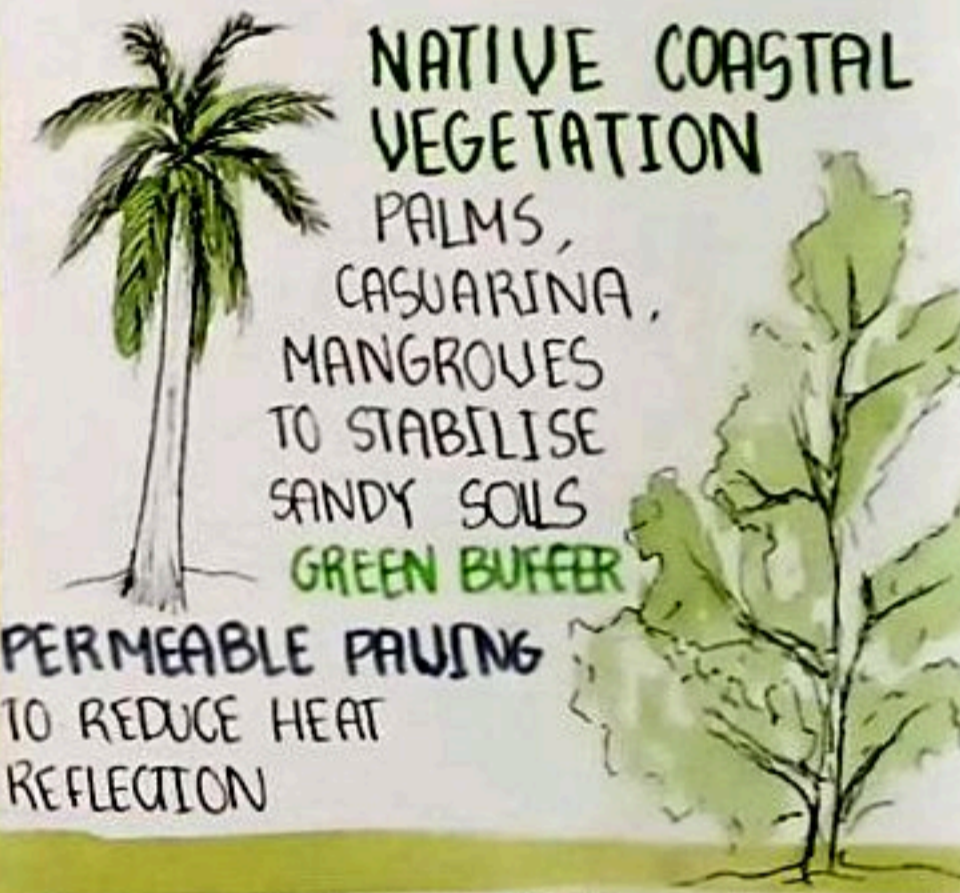 NATIVE COASTAL
VEGETATION
PALMS,
CASUARINA,
MANGROVES
TO STABILISE
SANDY SOILS
GREEN BUFFER
PERMEABLE PAVING
TO REDUCE HEAT
REFLECTION